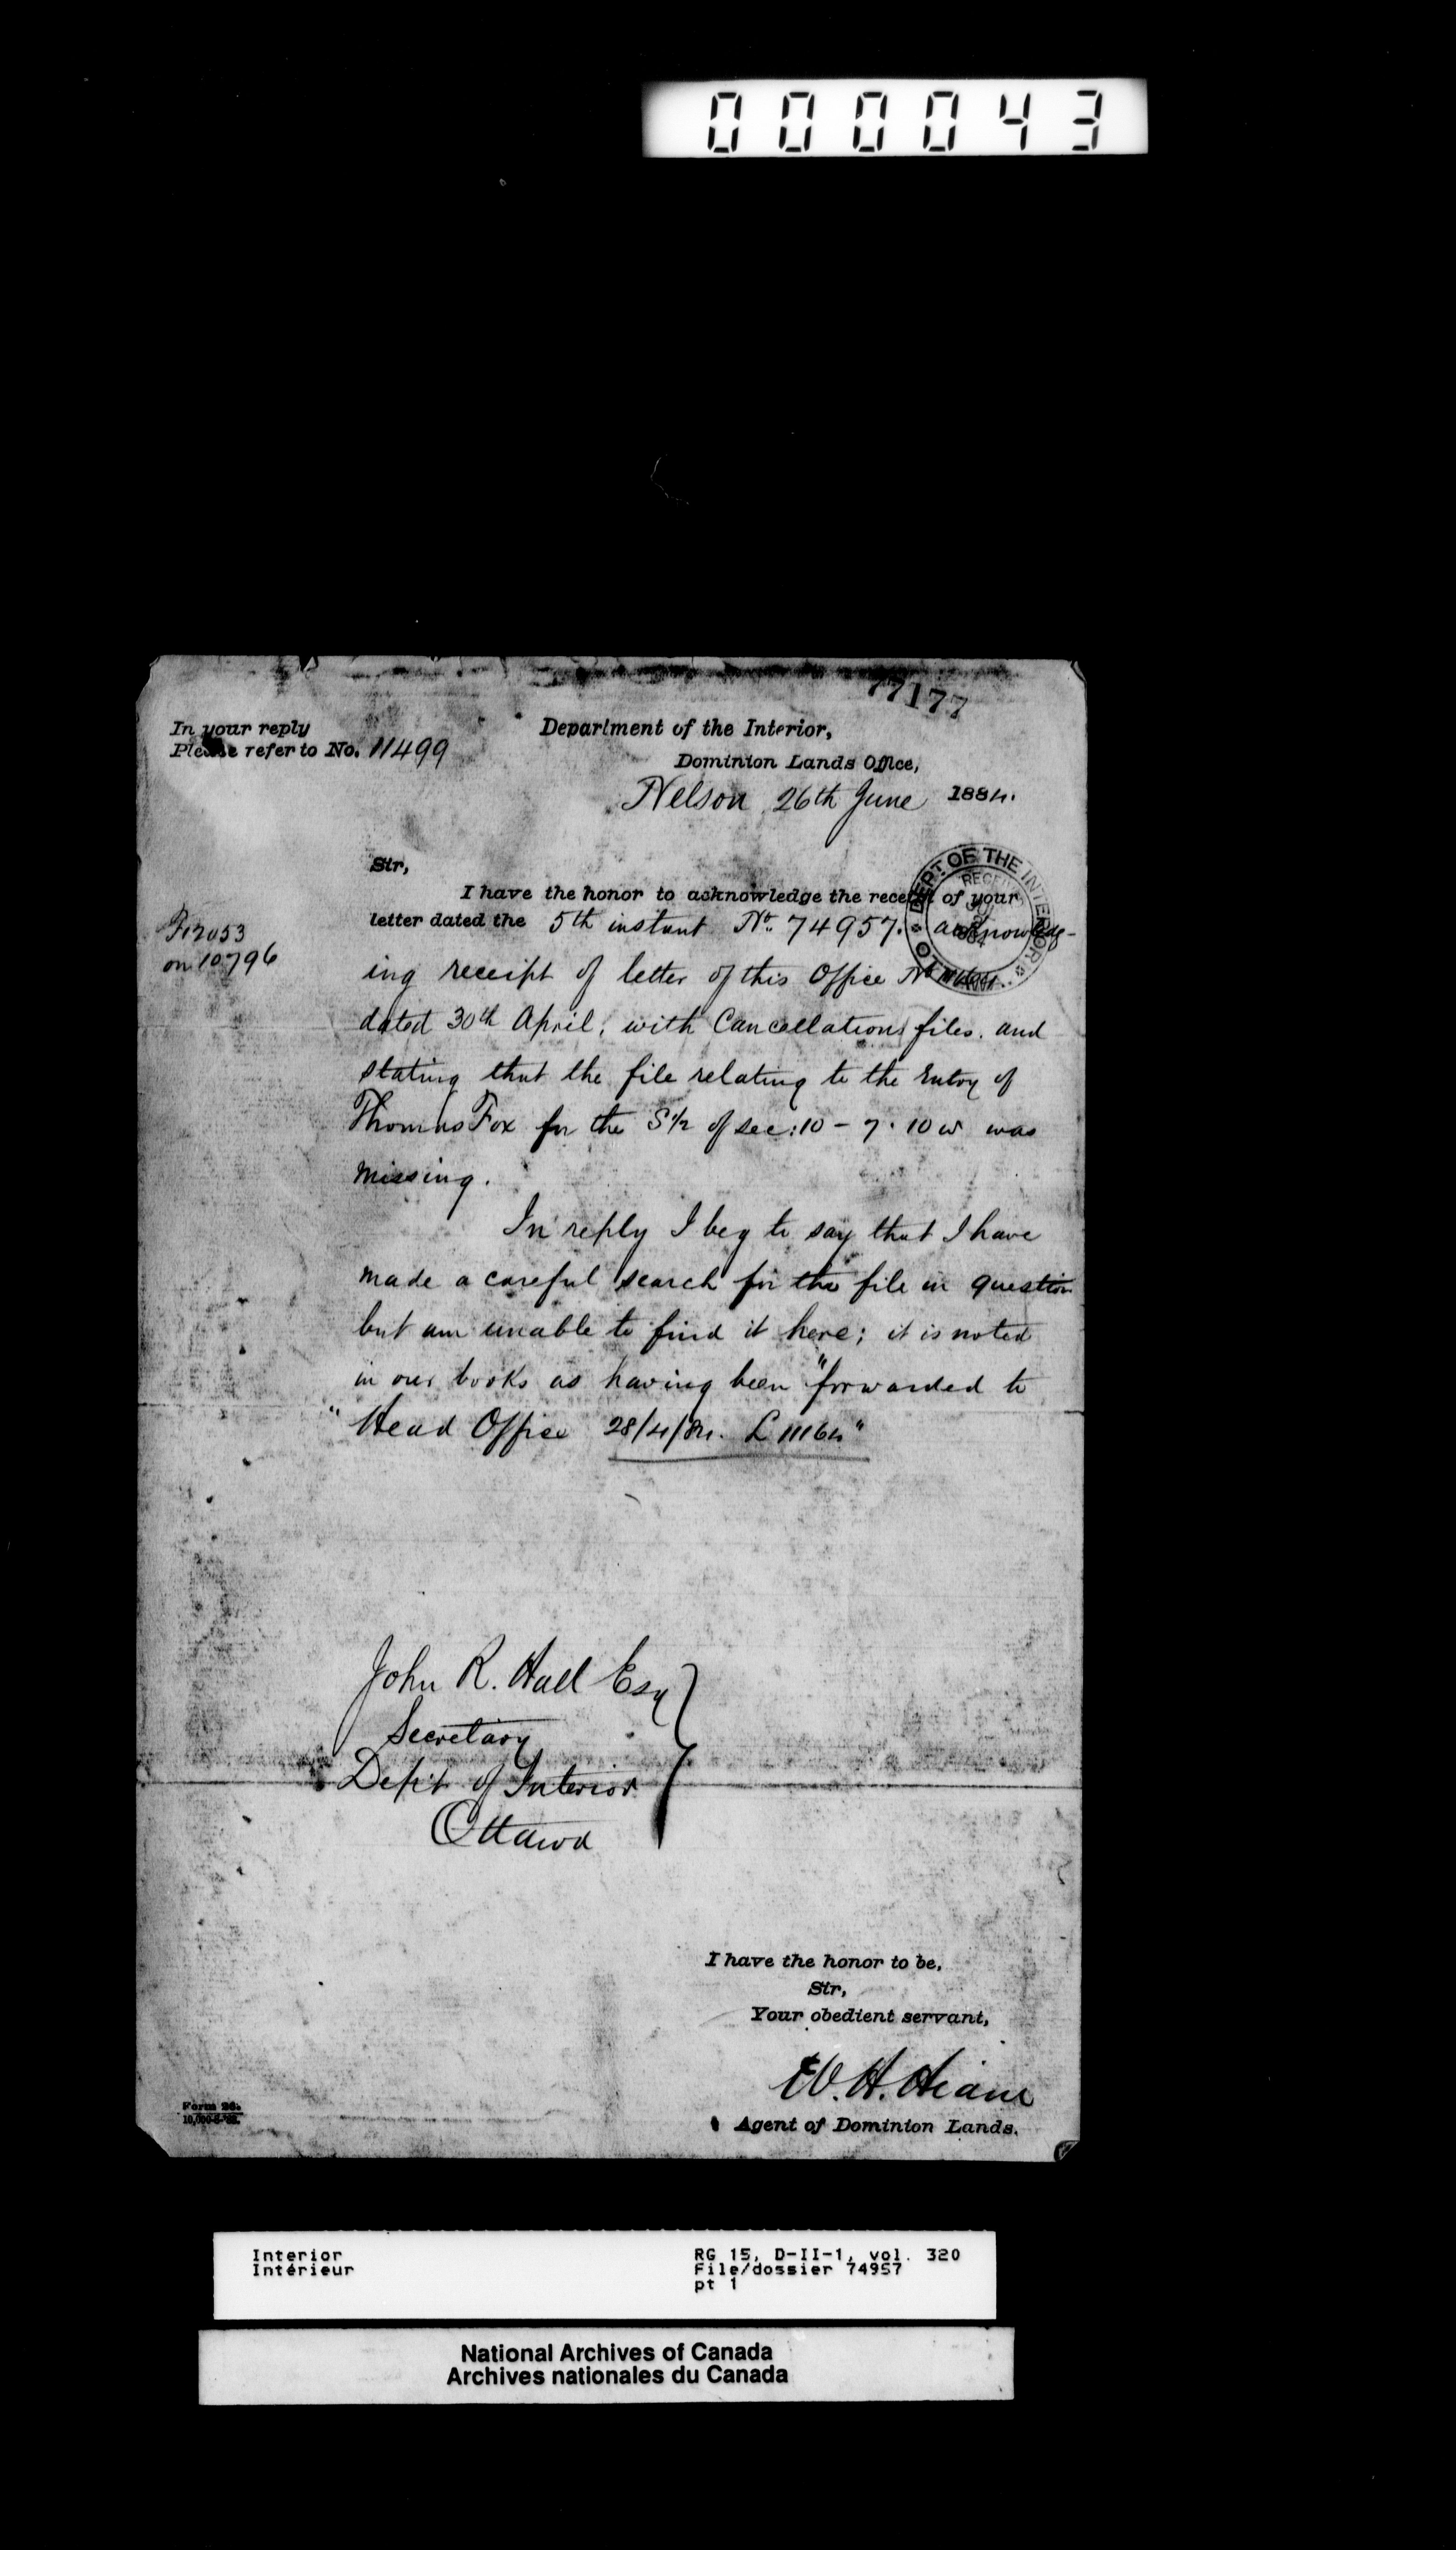 000043
77177
In your reply
Please refer to No. 11499
Department of the Interior,
Dominion Lands Office,
Nelson 26th June 1884.
Sir,
I have the honor to acknowledge the receipt of your
letter dated the 5th instant No. 74957. acknowledg-
F12053
on 10796
DEPT. OF THE INTERIOR
ing receipt of letter of this Office No
dated 30th April, with Cancellation files. and
stating that the file relating to the Entry of
Thomas Fox for the S½ of sec: 10 - 7. 10 w was
missing.
In reply I beg to say that I have
made a careful search for the file in question
but am unable to find it here; it is noted
in our books as having been "forwarded to
"Head Office 28/4/84. L 11164"
John R. Hall Esq
Secretary
Dept of Interior
Ottawa
I have the honor to be,
Sir,
Your obedient servant,
W. H. Hiam
Agent of Dominion Lands.
Form 26.
Interior
Intérieur
RG 15, D-II-1, vol. 320
File/dossier 74957
pt 1
National Archives of Canada
Archives nationales du Canada